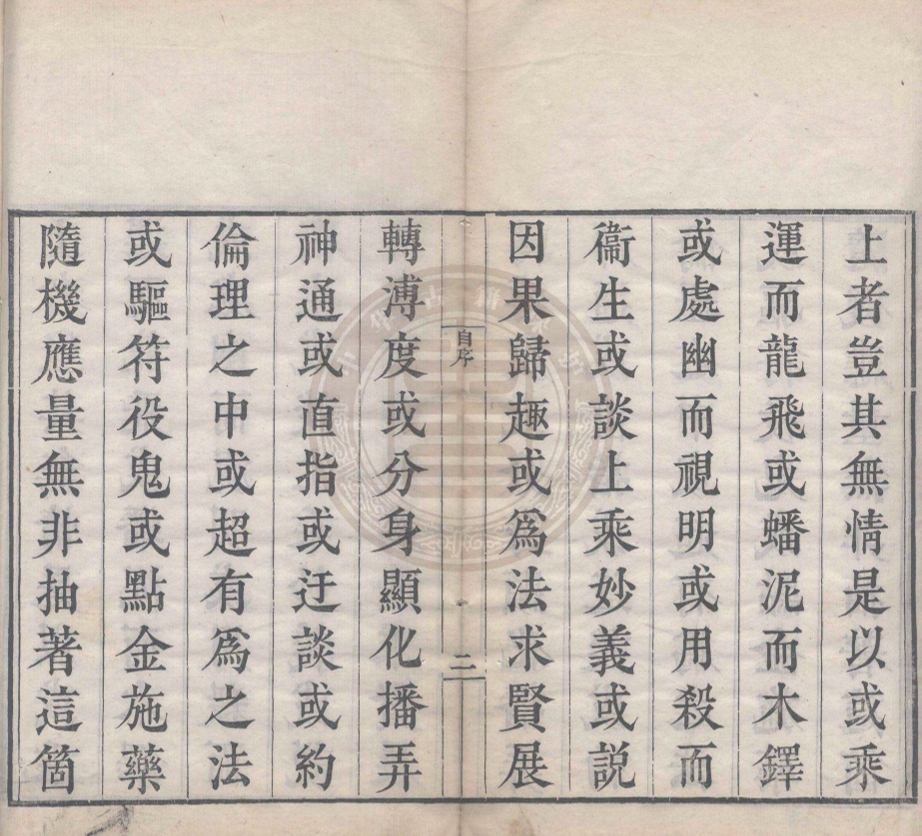 上者豈其無情是以或乘
運而龍飛或蟠泥而木鐸
或處幽而視明或用殺而
衞生或談上乘妙義或説
因果歸趣或爲法求賢展
自序
二
轉溥度或分身顯化播弄
神通或直指或迂談或約
倫理之中或超有爲之法
或驅符役鬼或點金施藥
隨機應量無非抽著這箇